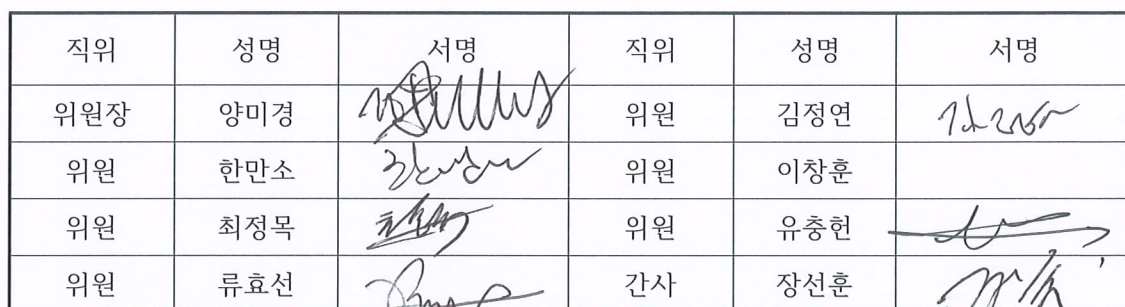 직위 성명 서명 직위 성명 서명
위원장 양미경 위원 김정연
위원 한만소 위원 이창훈
위원 최정목 위원 유충헌
위원 류효선 간사 장선훈